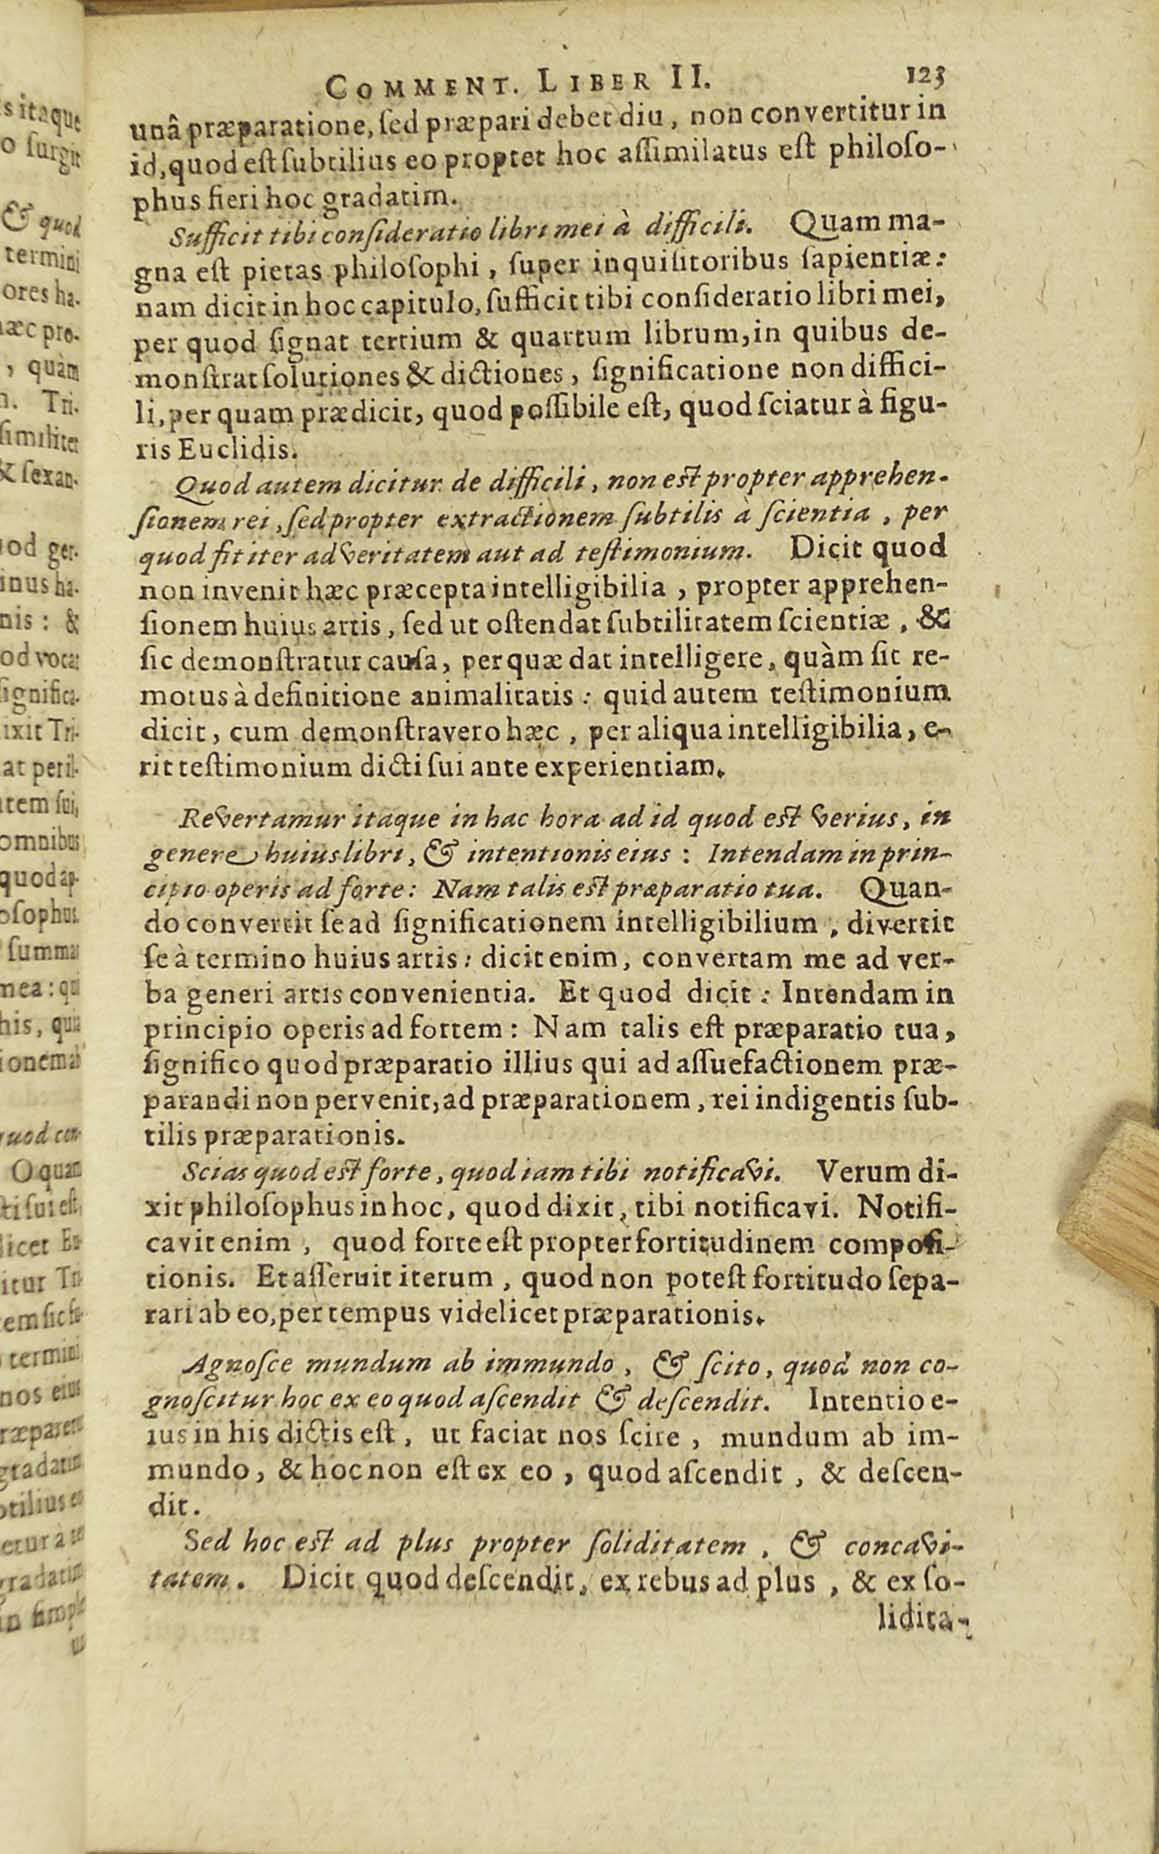 COMMENT. LIBER II. 123
unâ præparatione, ſed præpari debet diu, non convertitur in
id, quod eſt ſubtilius eo proptet hoc aſſimilatus eſt philoſo-
phus fieri hoc gradatim.
Sufficit tibi conſideratio libri mei à difficili. Quam ma-
gna eſt pietas philoſophi, ſuper inquiſitoribus ſapientiæ:
nam dicit in hoc capitulo, ſufficit tibi conſideratio libri mei,
per quod ſignat tertium & quartum librum, in quibus de-
monſtrat ſolutiones & dictiones, ſignificatione non diffici-
li, per quam prædicit, quod poſſibile eſt, quod ſciatur à figu-
ris Euclidis.
Quod autem dicitur de difficili, non eſt propter apprehen-
ſionem rei, ſed propter extractionem ſubtilis à ſcientia, per
quod fit iter ad veritatem aut ad teſtimonium. Dicit quod
non invenit hæc præcepta intelligibilia, propter apprehen-
ſionem huius artis, ſed ut oſtendat ſubtilitatem ſcientiæ, &
ſic demonſtratur cauſa, per quæ dat intelligere, quàm ſit re-
motus à definitione animalitatis: quid autem teſtimonium
dicit, cum demonſtravero hæc, per aliqua intelligibilia, e-
rit teſtimonium dicti ſui ante experientiam.
Revertamur itaque in hac hora ad id quod eſt verius, in
genere huius libri, & intentionis eius: Intendam in prin-
cipio operis ad forte: Nam talis eſt præparatio tua. Quan-
do convertit ſe ad ſignificationem intelligibilium, divertit
ſe à termino huius artis: dicit enim, convertam me ad ver-
ba generi artis convenientia. Et quod dicit: Intendam in
principio operis ad fortem: Nam talis eſt præparatio tua,
ſignifico quod præparatio illius qui ad aſſuefactionem præ-
parandi non pervenit, ad præparationem, rei indigentis ſub-
tilis præparationis.
Scias quod eſt forte, quod iam tibi notificavi. Verum di-
xit philoſophus in hoc, quod dixit, tibi notificavi. Notifi-
cavit enim, quod forte eſt propter fortitudinem compoſi-
tionis. Et aſſeruit iterum, quod non poteſt fortitudo ſepa-
rari ab eo, per tempus videlicet præparationis.
Agnoſce mundum ab immundo, & ſcito, quod non co-
gnoſcitur hoc ex eo quod aſcendit & deſcendit. Intentio e-
ius in his dictis eſt, ut faciat nos ſcire, mundum ab im-
mundo, & hoc non eſt ex eo, quod aſcendit, & deſcen-
dit.
Sed hoc eſt ad plus propter ſoliditatem, & concavi-
tatem. Dicit quod deſcendit, ex rebus ad plus, & ex ſo-
lidita-